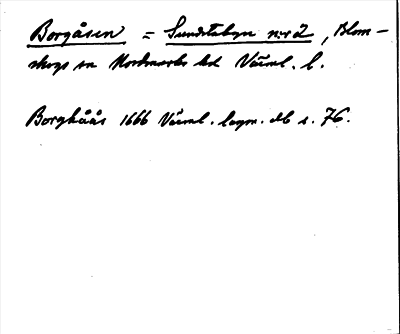 Borgåsen = Sundstabyn nr 2, Blom-
skogs sn Nordmarks hd Värml. l.
Borghåås 1666 Värml. lagm. db s. 76.